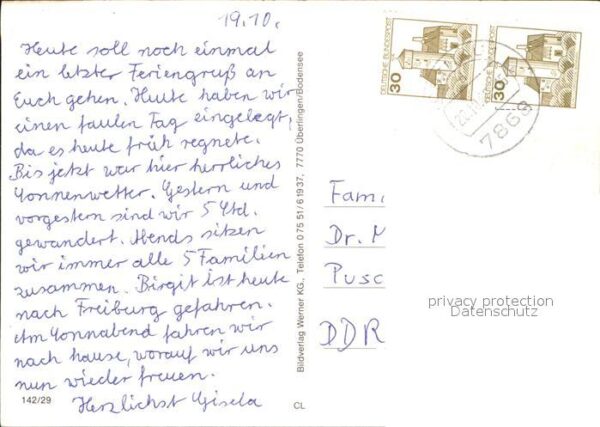 19.10.
Heute soll noch einmal
ein letzter Feriengruß an
Euch gehen. Heute haben wir
einen faulen Tag eingelegt,
da es heute früh regnete.
Bis jetzt war hier herrliches
Sonnenwetter. Gestern und
vorgestern sind wir 5 Std.
gewandert. Abends sitzen
wir immer alle 5 Familien
zusammen. Birgit ist heute
nach Freiburg gefahren.
Am Sonnabend fahren wir
nach hause, worauf wir uns
nun wieder freuen.
Herzlichst Gisela
142/29
CL
Bildverlag Werner KG., Telefon 0 75 51/6 19 37, 7770 Überlingen/Bodensee
DEUTSCHE BUNDESPOST
30
DEUTSCHE BUNDESPOST
30
7868
Fam
Dr.
Pusc
DDR
privacy protection
Datenschutz